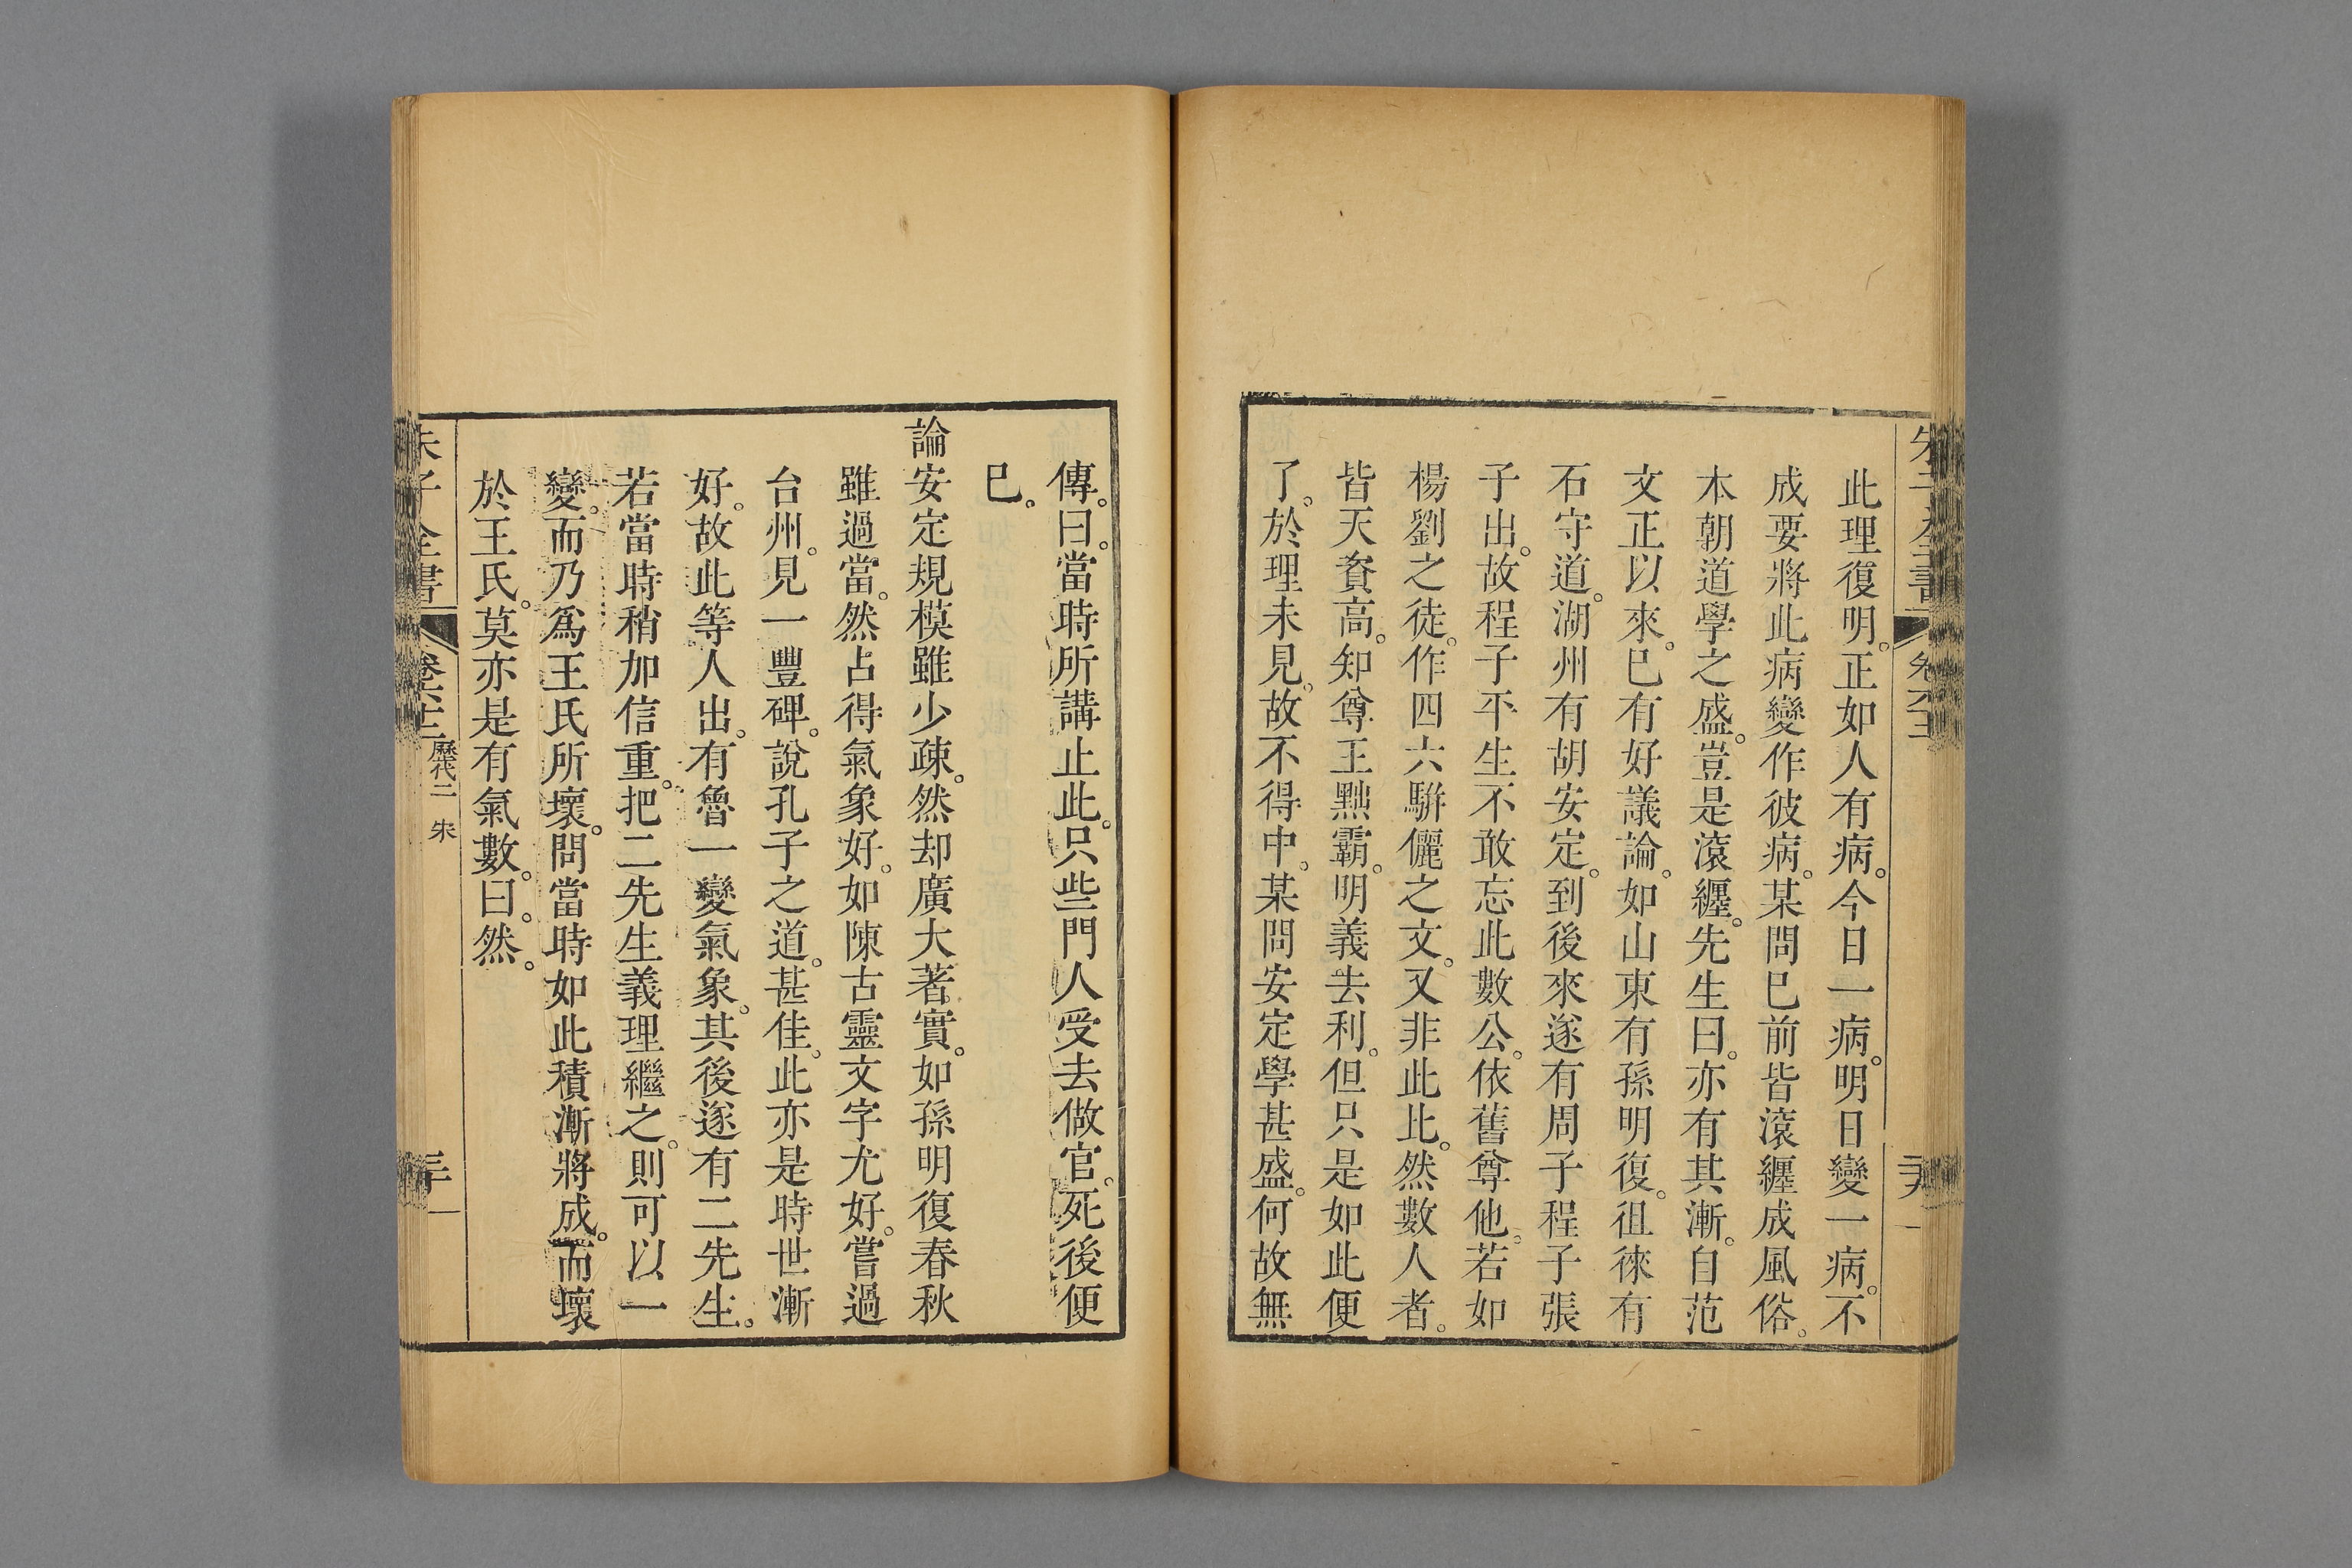 此理復明。正如人有病。今日一病。明日變一病。不
成要將此病變作彼病。某問已前皆滾纏成風俗。
本朝道學之盛。豈是滾纏。先生曰。亦有其漸。自范
文正以來。已有好議論。如山東有孫明復。徂徠有
石守道。湖州有胡安定。到後來遂有周子程子張
子出。故程子平生不敢忘此數公。依舊尊他。若如
楊劉之徒。作四六駢儷之文。又非此比。然數人者。
皆天資高。知尊王黜霸。明義去利。但只是如此便
了。於理未見。故不得中。某問安定學甚盛。何故無
傳。曰。當時所講止此。只些門人受去做官。死後便
已。
論安定規模雖少疎。然却廣大著實。如孫明復春秋
雖過當。然占得氣象好。如陳古靈文字尤好。嘗過
台州。見一豐碑。說孔子之道。甚佳。此亦是時世漸
好。故此等人出。有魯一變氣象。其後遂有二先生。
若當時稍加信重。把二先生義理繼之。則可以一
變。而乃爲王氏所壞。問當時如此積漸將成。而壞
於王氏。莫亦是有氣數。曰。然。
朱子全書
歷代二 宋